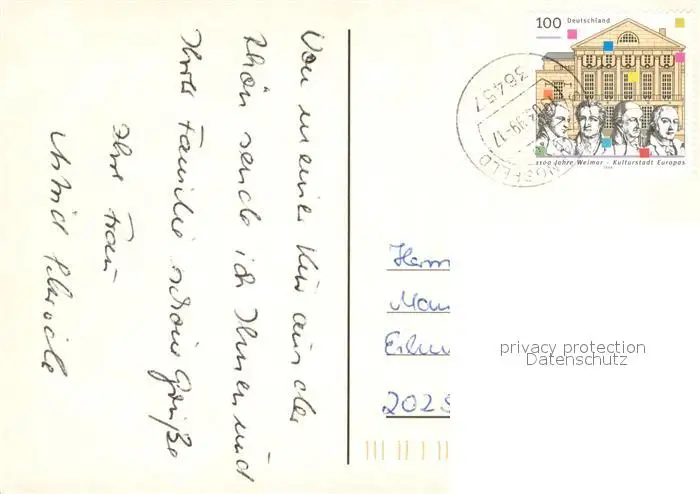 Von meiner Kur aus der
Rhön sende ich Ihnen und
Ihrer Familie schöne Grüße
Ihre Frau
Astrid
100 Deutschland
1100 Jahre Weimar - Kulturstadt Europas
36457
99-17
Herrn
202
privacy protection
Datenschutz